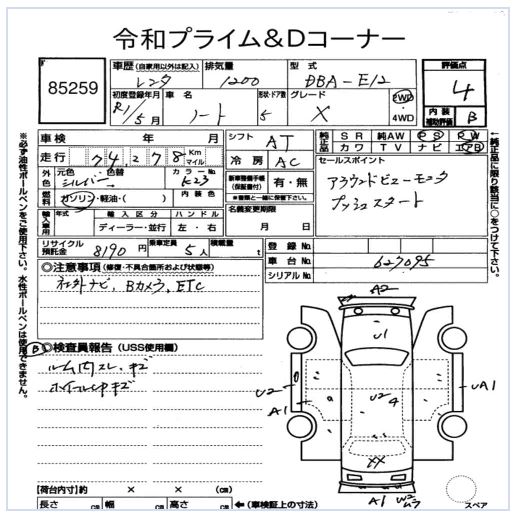 令和プライム&Dコーナー
85259
車歴 (自家用以外は記入) レンタ
排気量 1200
型式 DBA-E12
評価点 4
初度登録年月 R1/5月
車名 ノート
形状・ドア数 5
グレード X
2WD
4WD
内装補助評価 B
車検 年 月
走行 74,278 Km マイル
シフト AT
冷房 AC
純正品 SR 純AW PS PW
純正品 カワ TV ナビ エアB
外色 元色 シルバー 色替 カラーNo K23
内装色
燃料 ガソリン・軽油・( )
新車整備手帳(保証書付) 有・無
※書類と一緒に保管下さい。
セールスポイント
アラウンドビューモニタ
プッシュスタート
輸入車用 年式 輸入区分 ハンドル
ディーラー・並行 左・右
名義変更期限
月 日
リサイクル預託金 8190円
乗車定員 5人
積載量 t
登録No
車台No 627095
シリアルNo
◎注意事項(修復・不具合箇所および状態等)
社外ナビ、Bカメラ、ETC
◎検査員報告(USS使用欄)
ルーム内スレ、キズ
ホイールCAPキズ
A2
U1
U2
A1
U2
4
UA1
XX
A1
W2
ムラ
スペア
【荷台内寸】約 × × (cm)
長さ cm 幅 cm 高さ cm
←(車検証上の寸法)
※必ず油性ボールペンをご使用下さい。水性ボールペンは使用できません。
←純正品に限り該当に○をつけて下さい。